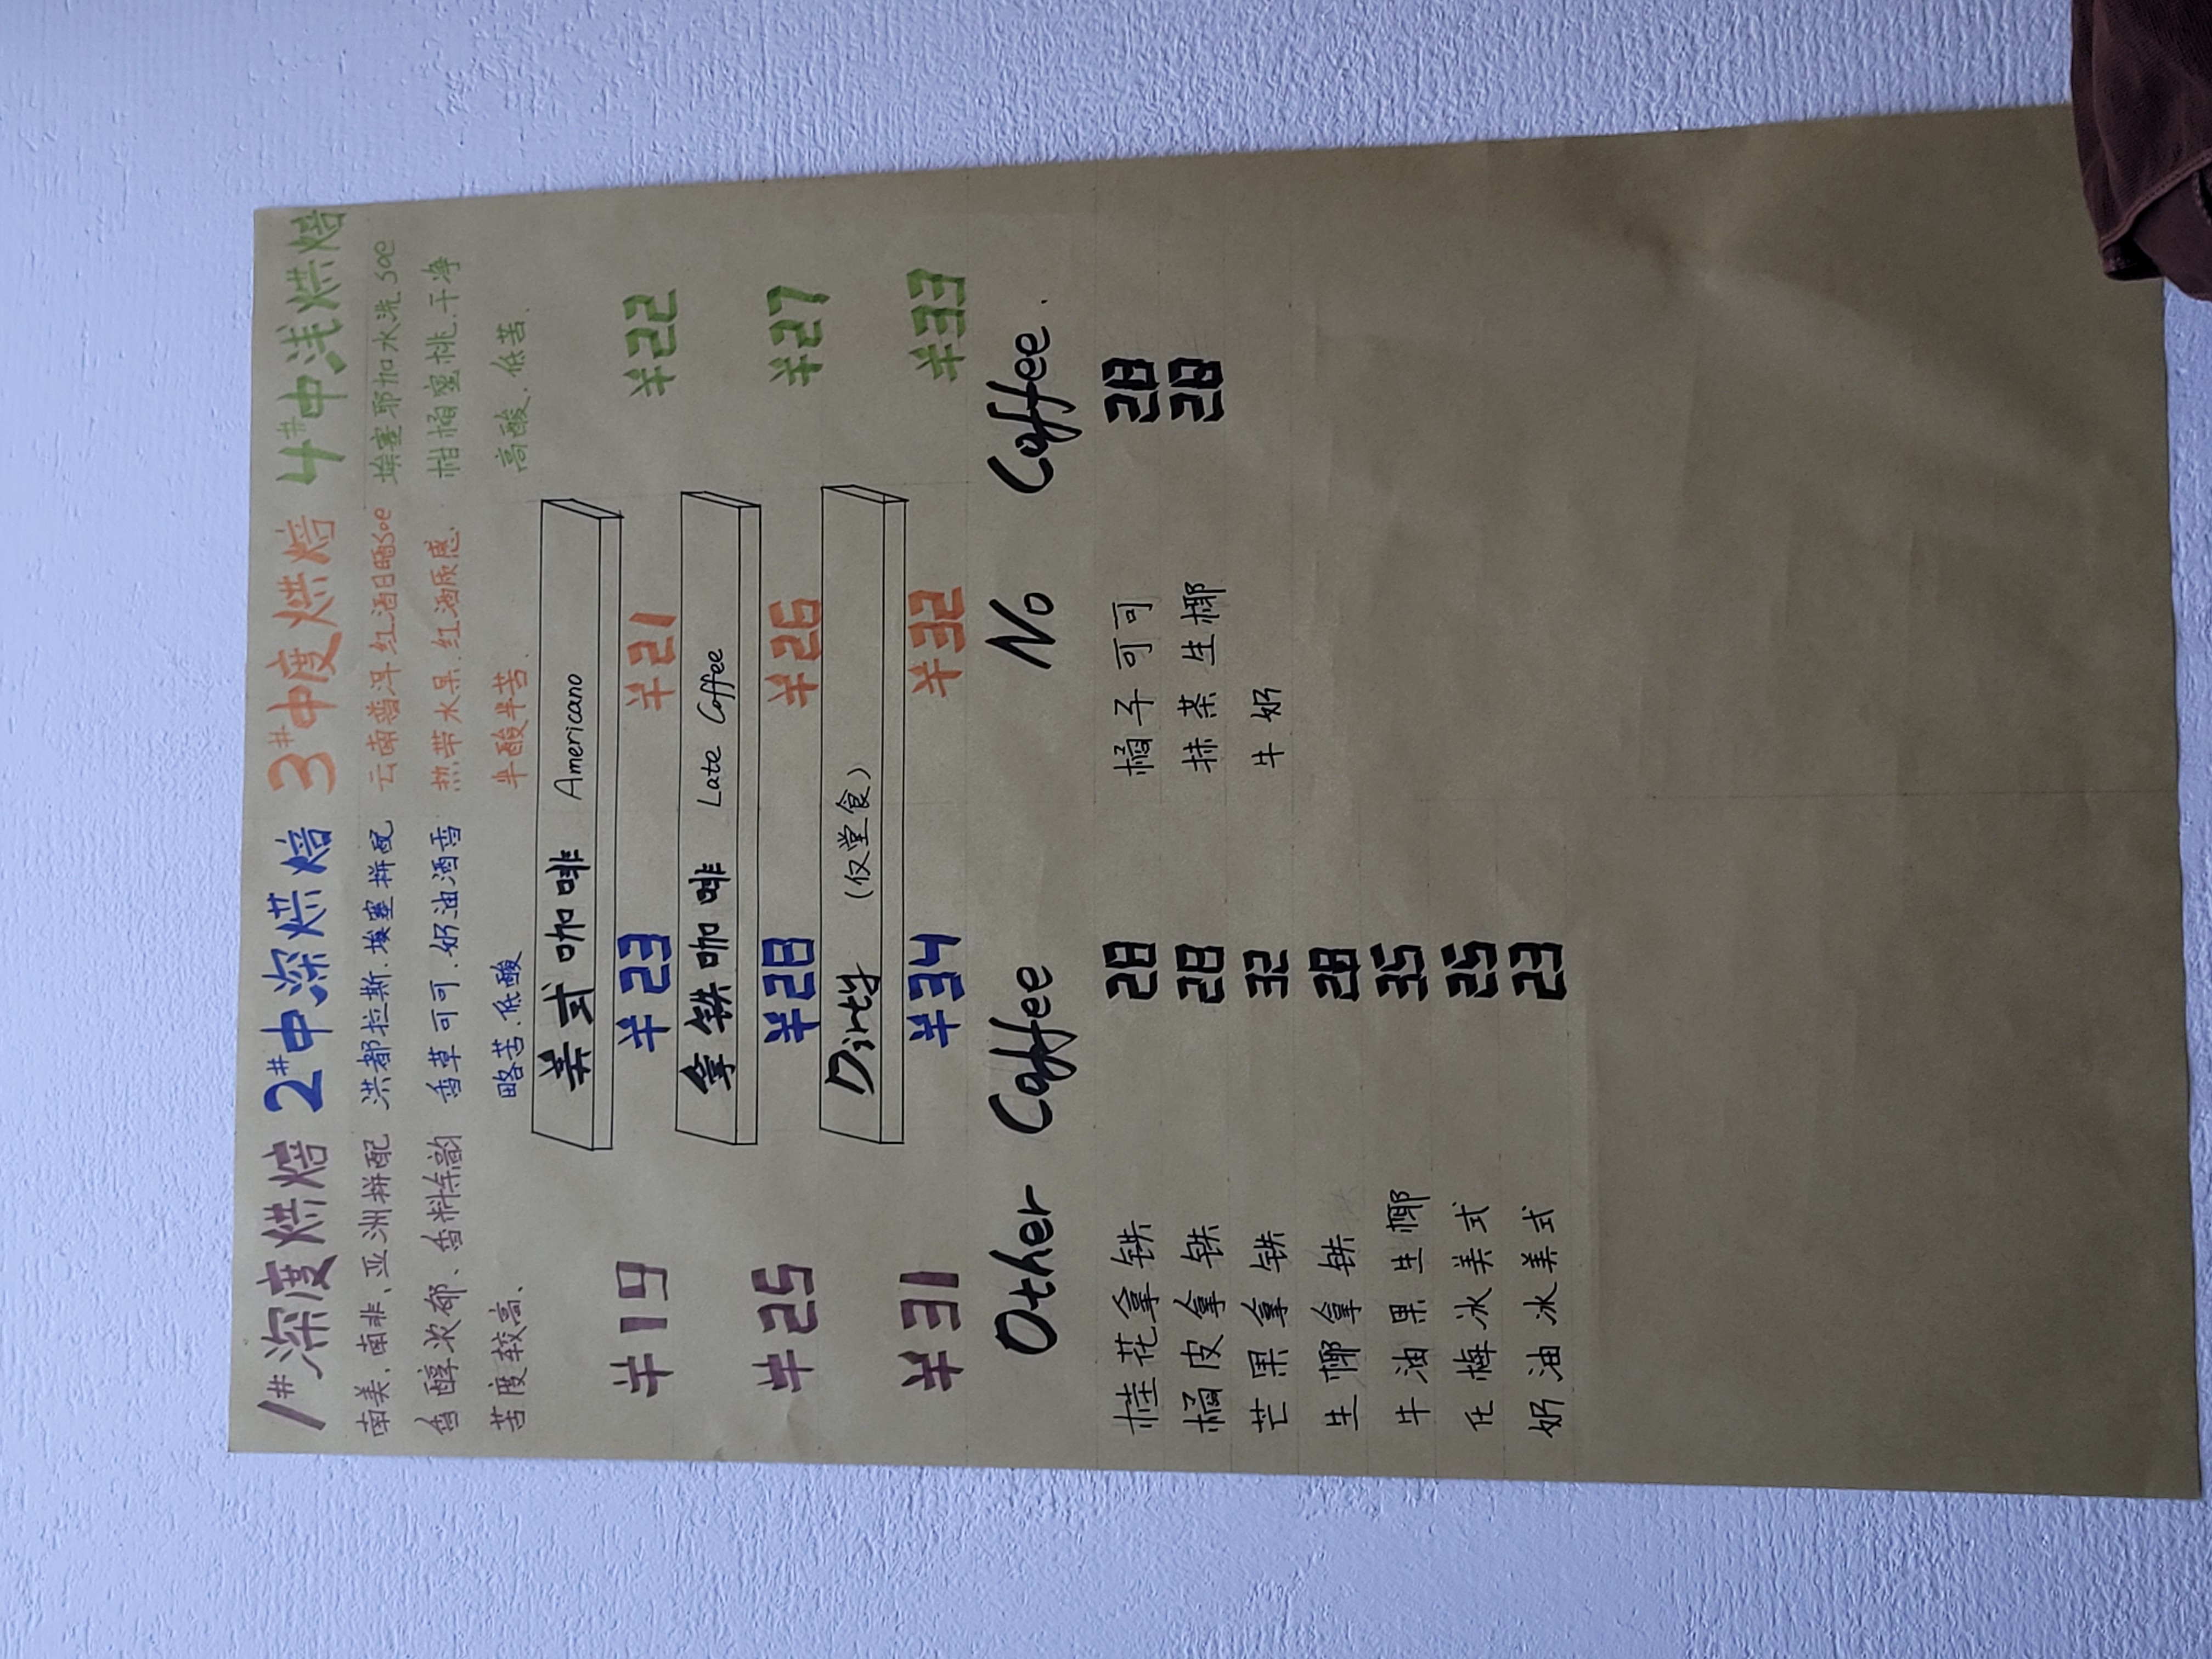 1#深度烘焙 2#中深烘焙 3#中度烘焙 4#中浅烘焙
南美、南非、亚洲拼配 洪都拉斯.埃塞拼配 云南普洱红酒日晒soe 埃塞耶加水洗soe
香醇浓郁、香料余韵 香草可可.奶油酒香 热带水果.红酒质感 柑橘蜜桃.干净
苦度较高、 略苦.低酸 半酸半苦. 高酸、低苦.
美式咖啡 Americano
¥19 ¥23 ¥21 ¥22
拿铁咖啡 Late Coffee
¥25 ¥28 ¥26 ¥27
Dirty (仅堂食)
¥31 ¥34 ¥32 ¥33
Other Coffee No Coffee.
桂花拿铁 28 橘子可可 28
橘皮拿铁 28 抹茶生椰 28
芒果拿铁 32 牛奶
生椰拿铁 28
牛油果生椰 35
梅冰美式 25
奶油冰美式 23